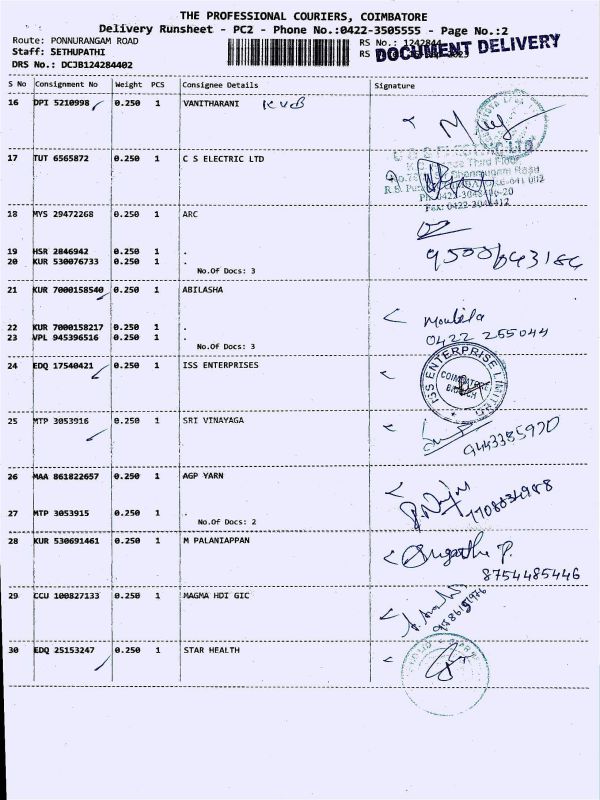 THE PROFESSIONAL COURIERS, COIMBATORE
Delivery Runsheet - PC2 - Phone No.:0422-3505555 - Page No.:2
Route: PONNURANGAM ROAD
RS No.: 1242844
Staff: SETHUPATHI
RS
DOCUMENT DELIVERY
DRS No.: DCJB124284402
S No Consignment No Weight PCS Consignee Details Signature
16 DPI 5210998 0.250 1 VANITHARANI KVB
17 TUT 6565872 0.250 1 C S ELECTRIC LTD
Third Floor
Fax: 0422-
18 MYS 29472268 0.250 1 ARC
19 HSR 2846942 0.250 1 .
20 KUR 530076733 0.250 1 .
No.Of Docs: 3
21 KUR 7000158540 0.250 1 ABILASHA
22 KUR 7000158217 0.250 1 .
0422 255044
23 VPL 945396516 0.250 1 .
No.Of Docs: 3
24 EDQ 17540421 0.250 1 ISS ENTERPRISES
ISS ENTERPRISE LIMITED
COIMBATORE
BRANCH
25 MTP 3053916 0.250 1 SRI VINAYAGA
9443385970
26 MAA 861822657 0.250 1 AGP YARN
27 MTP 3053915 0.250 1 .
No.Of Docs: 2
28 KUR 530691461 0.250 1 M PALANIAPPAN
8754485446
29 CCU 100827133 0.250 1 MAGMA HDI GIC
30 EDQ 25153247 0.250 1 STAR HEALTH